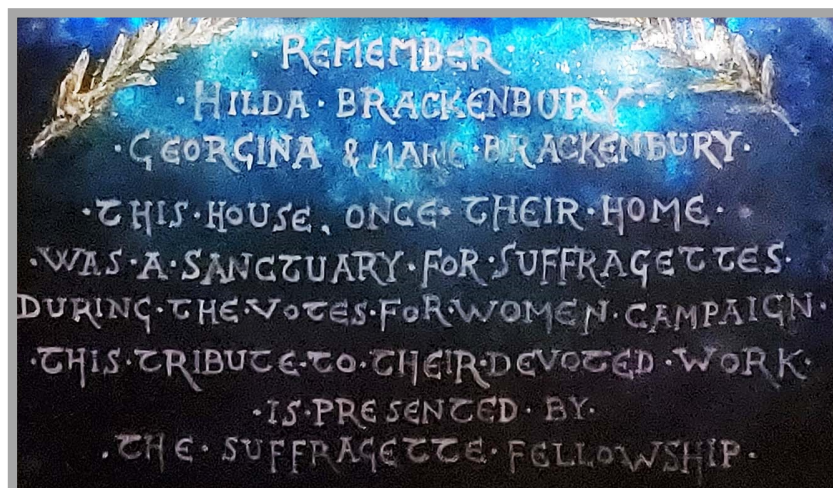 · REMEMBER ·
· HILDA · BRACKENBURY ·
· GEORGINA & MARIE · BRACKENBURY ·
· THIS · HOUSE, ONCE · THEIR · HOME ·
· WAS · A · SANCTUARY · FOR · SUFFRAGETTES ·
DURING · THE · VOTES · FOR · WOMEN · CAMPAIGN ·
· THIS · TRIBUTE · TO · THEIR · DEVOTED · WORK ·
· IS · PRESENTED · BY ·
· THE · SUFFRAGETTE · FELLOWSHIP ·